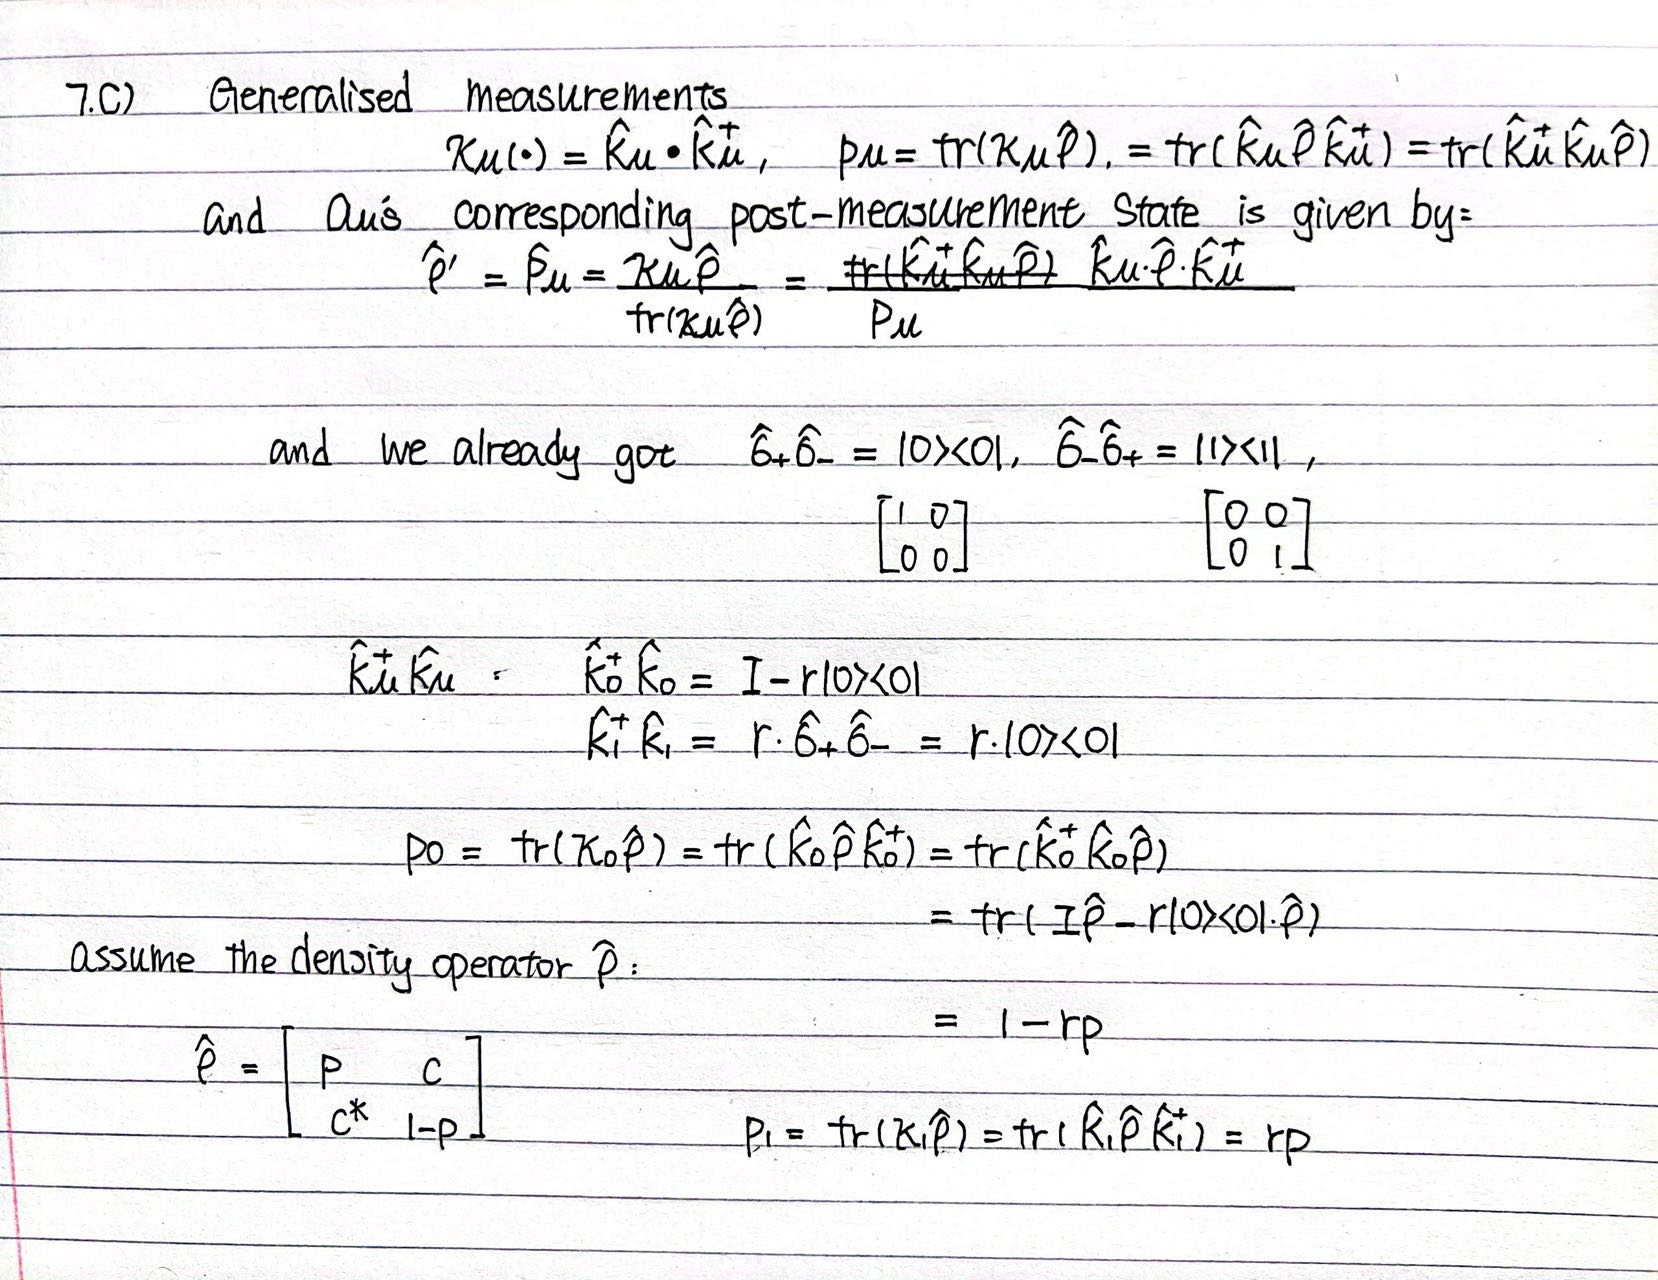 7.C) Generalised measurements
𝒦μ(•) = K̂μ • K̂μ†, pμ = tr(𝒦μρ̂). = tr(K̂μρ̂K̂μ†) = tr(K̂μ†K̂μρ̂)
and aμ's corresponding post-measurement state is given by:
ρ̂' = ρ̂μ = 𝒦μρ̂ / tr(𝒦μρ̂) = tr(K̂μ†K̂μρ̂) K̂μ·ρ̂·K̂μ† / pμ
and we already got σ̂+σ̂- = |0><0|, σ̂-σ̂+ = |1><1|,
[1 0 [0 0
0 0] 0 1]
K̂μ†K̂μ : K̂0†K̂0 = I-r|0><0|
K̂1†K̂1 = r·σ̂+σ̂- = r·|0><0|
p0 = tr(𝒦0ρ̂) = tr(K̂0ρ̂K̂0†) = tr(K̂0†K̂0ρ̂)
= tr(Iρ̂-r|0><0|·ρ̂)
assume the density operator ρ̂:
= 1-rp
ρ̂ = [p c
c* 1-p]
p1 = tr(𝒦1ρ̂) = tr(K̂1ρ̂K̂1†) = rp